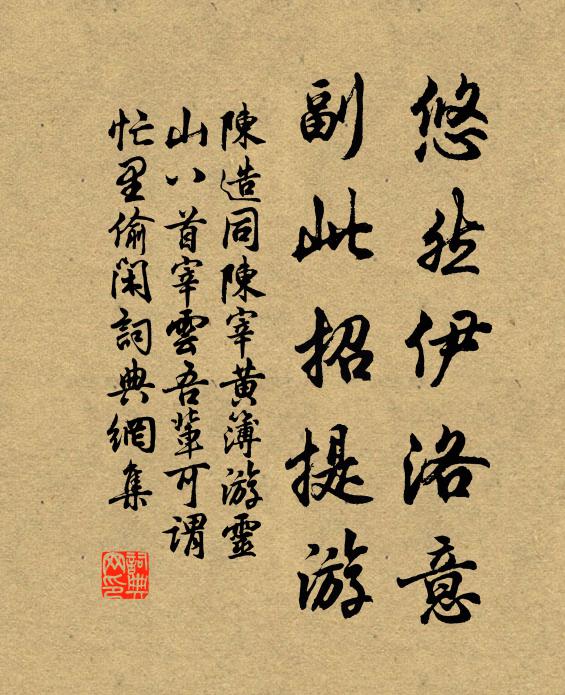 悠然伊洛意
副此招提游
陳造同陳宰黄簿游靈
山八首宰雲吾輩可謂
忙里偷閑詞典網集
詞典
网印